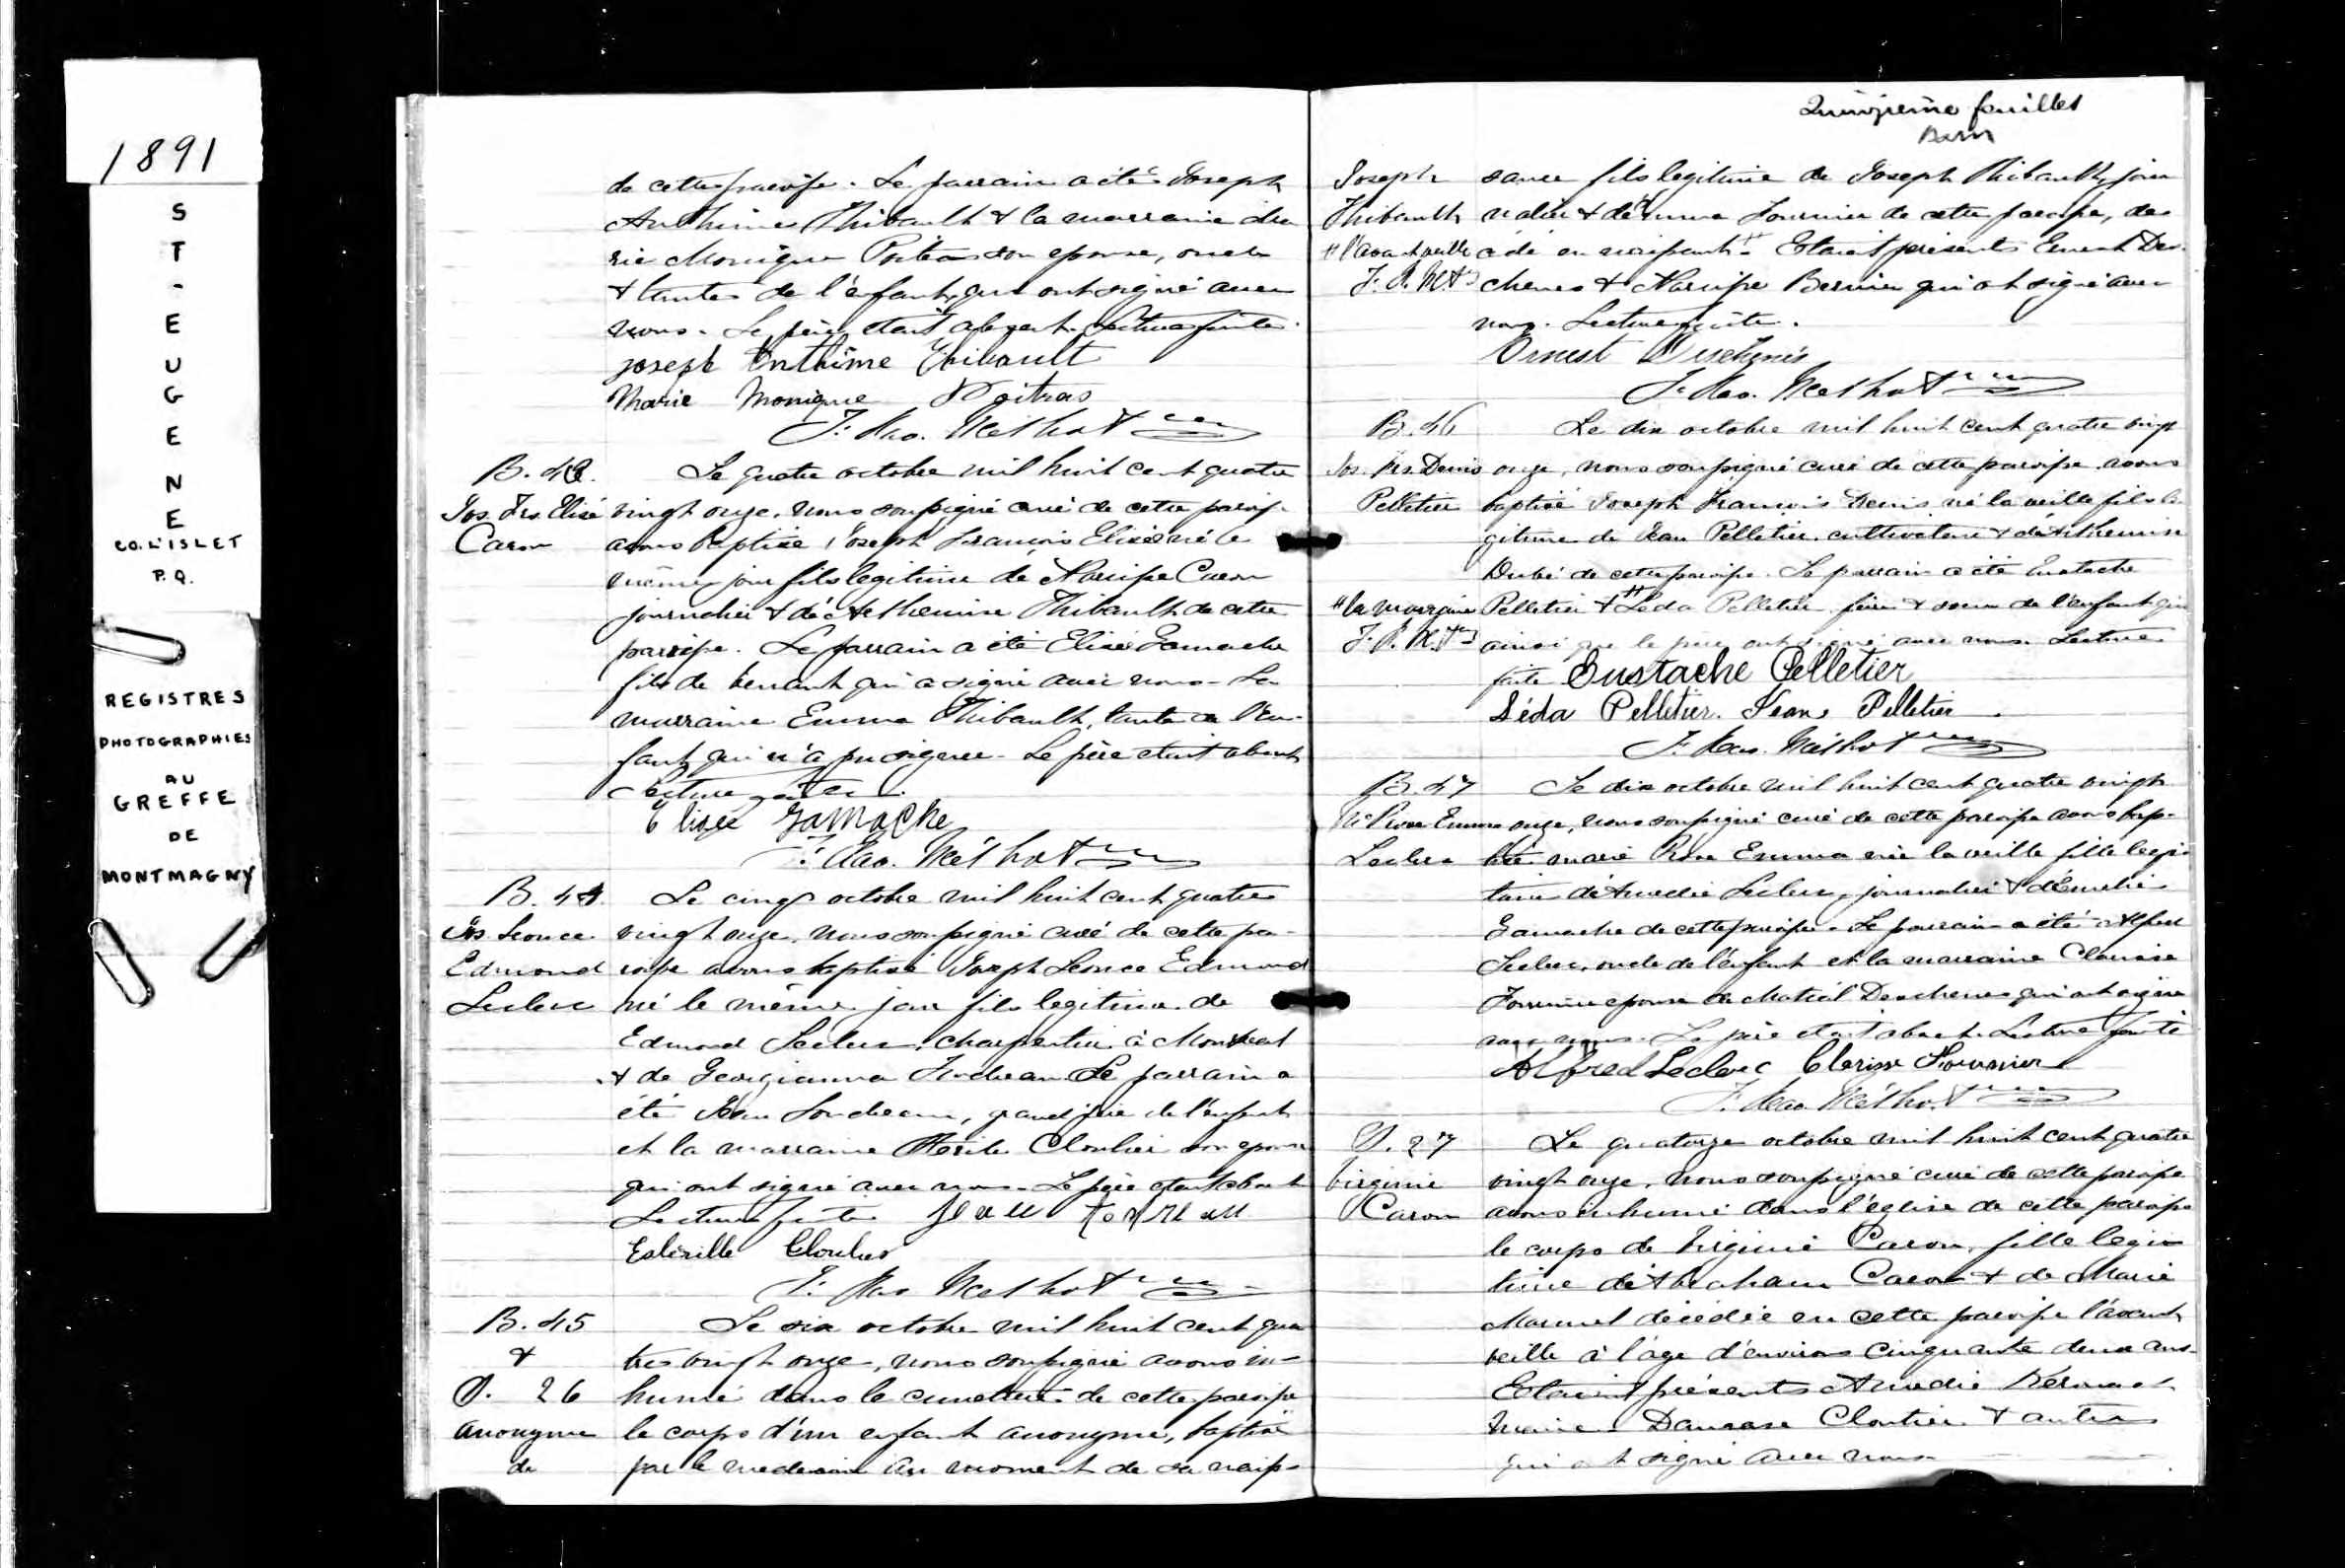 1891
ST-EUGENE
CO. L'ISLET
P.Q.
REGISTRES
PHOTOGRAPHIES
AU
GREFFE
DE
MONTMAGNY
de cette paroisse. Le parrain a été Joseph
Anthime Thibault & la marraine Ma
rie Monique Poitras son epouse, oncle
& tante de l'enfant, qui ont signé avec
nous. Le père etait absent. Lecture faite.
Joseph Enthime Thibault
Marie Monique Poitras
F. Mao. Méthot ptre
B. 43.
Jos. Frs. Elisé
Caron
Le quatre octobre mil huit cent quatre
vingt onze, nous soussigné curé de cette paroisse
avons baptisé Joseph François Elisé né le
même jour fils legitime de Narcisse Caron
journalier & de Arthemise Thibault de cette
paroisse. Le parrain a été Elisée Gamache
fils de qui a signé avec nous. La
marraine Emma Thibault, tante de l'en-
fant qui n'a pu signer. Le père etait absent
Lecture faite.
Elizée Gamache
F. Mao. Méthot ptre
B. 44.
Jos. Leonce
Edmond
Leclerc
Le cinq octobre mil huit cent quatre
vingt onze, nous soussigné curé de cette pa-
roisse avons baptisé Joseph Leonce Edmond
né le même jour fils legitime de
Edmond Leclerc, charpentier à Montreal
& de Georgianna Le parrain a
été Jean grand père de l'enfant
et la marraine Cloutier son epouse
qui ont signé avec nous. Le père etait absent
Lecture faite Jean
Cloutier
F. Mao. Méthot ptre
B. 45
&
S. 26
Anonyme
de
Le six octobre mil huit cent qua
tre vingt onze, nous soussigné avons in-
humé dans le cimetière de cette paroisse
le corps d'un enfant anonyme, baptisé
par le medecin au moment de sa naiss-
Quinzième feuillet
Joseph
Thibault
# l'avant veille
F. M. M. ptre
sance fils legitime de Joseph Thibault, jour
nalier & de Fournier de cette paroisse, de
cédé en naissant #. Etaient présents Ernest Des-
chenes & Narcisse Bernier qui ont signé avec
nous. Lecture faite.
Ernest Deschenes
F. Mao. Méthot ptre
B. 46
Jos. Frs. Denis
Pelletier
Le dix octobre mil huit cent quatre vingt
onze, nous soussigné curé de cette paroisse avons
baptisé Joseph François Denis, né la veille fils le
gitime de Jean Pelletier, cultivateur & de Arthemise
Dubé de cette paroisse. Le parrain a été Eustache
# la marraine
F. M. M. ptre
Pelletier & # Léda Pelletier frère & soeur de l'enfant qui
ainsi que le père ont signé avec nous. Lecture
faite Eustache Pelletier
Léda Pelletier. Jean Pelletier
F. Mao. Méthot ptre
B. 47
Me Rose Emma
Leclerc
Le dix octobre mil huit cent quatre vingt
onze, nous soussigné curé de cette paroisse avons bap-
tisé Marie Rose Emma née la veille fille legi-
time de Amedée Leclerc, journalier & d'Emelie
Gamache de cette paroisse. Le parrain a été Alfred
Leclerc, oncle de l'enfant et la marraine Clarisse
Fournier epouse de Martial Deschenes qui ont signé
avec nous. Le père etait absent. Lecture faite
Alfred Leclerc Clarisse Fournier
F. Mao. Méthot ptre
S. 27
Virginie
Caron
Le quatorze octobre mil huit cent quatre
vingt onze, nous soussigné curé de cette paroisse
avons inhumé dans l'église de cette paroisse
le corps de Virginie Caron, fille legi-
time de Abraham Caron & de Marie
décédée en cette paroisse l'avant
veille à l'age d'environ cinquante deux ans
Etaient présents Amedée
Damase Cloutier & autres
qui ont signé avec nous